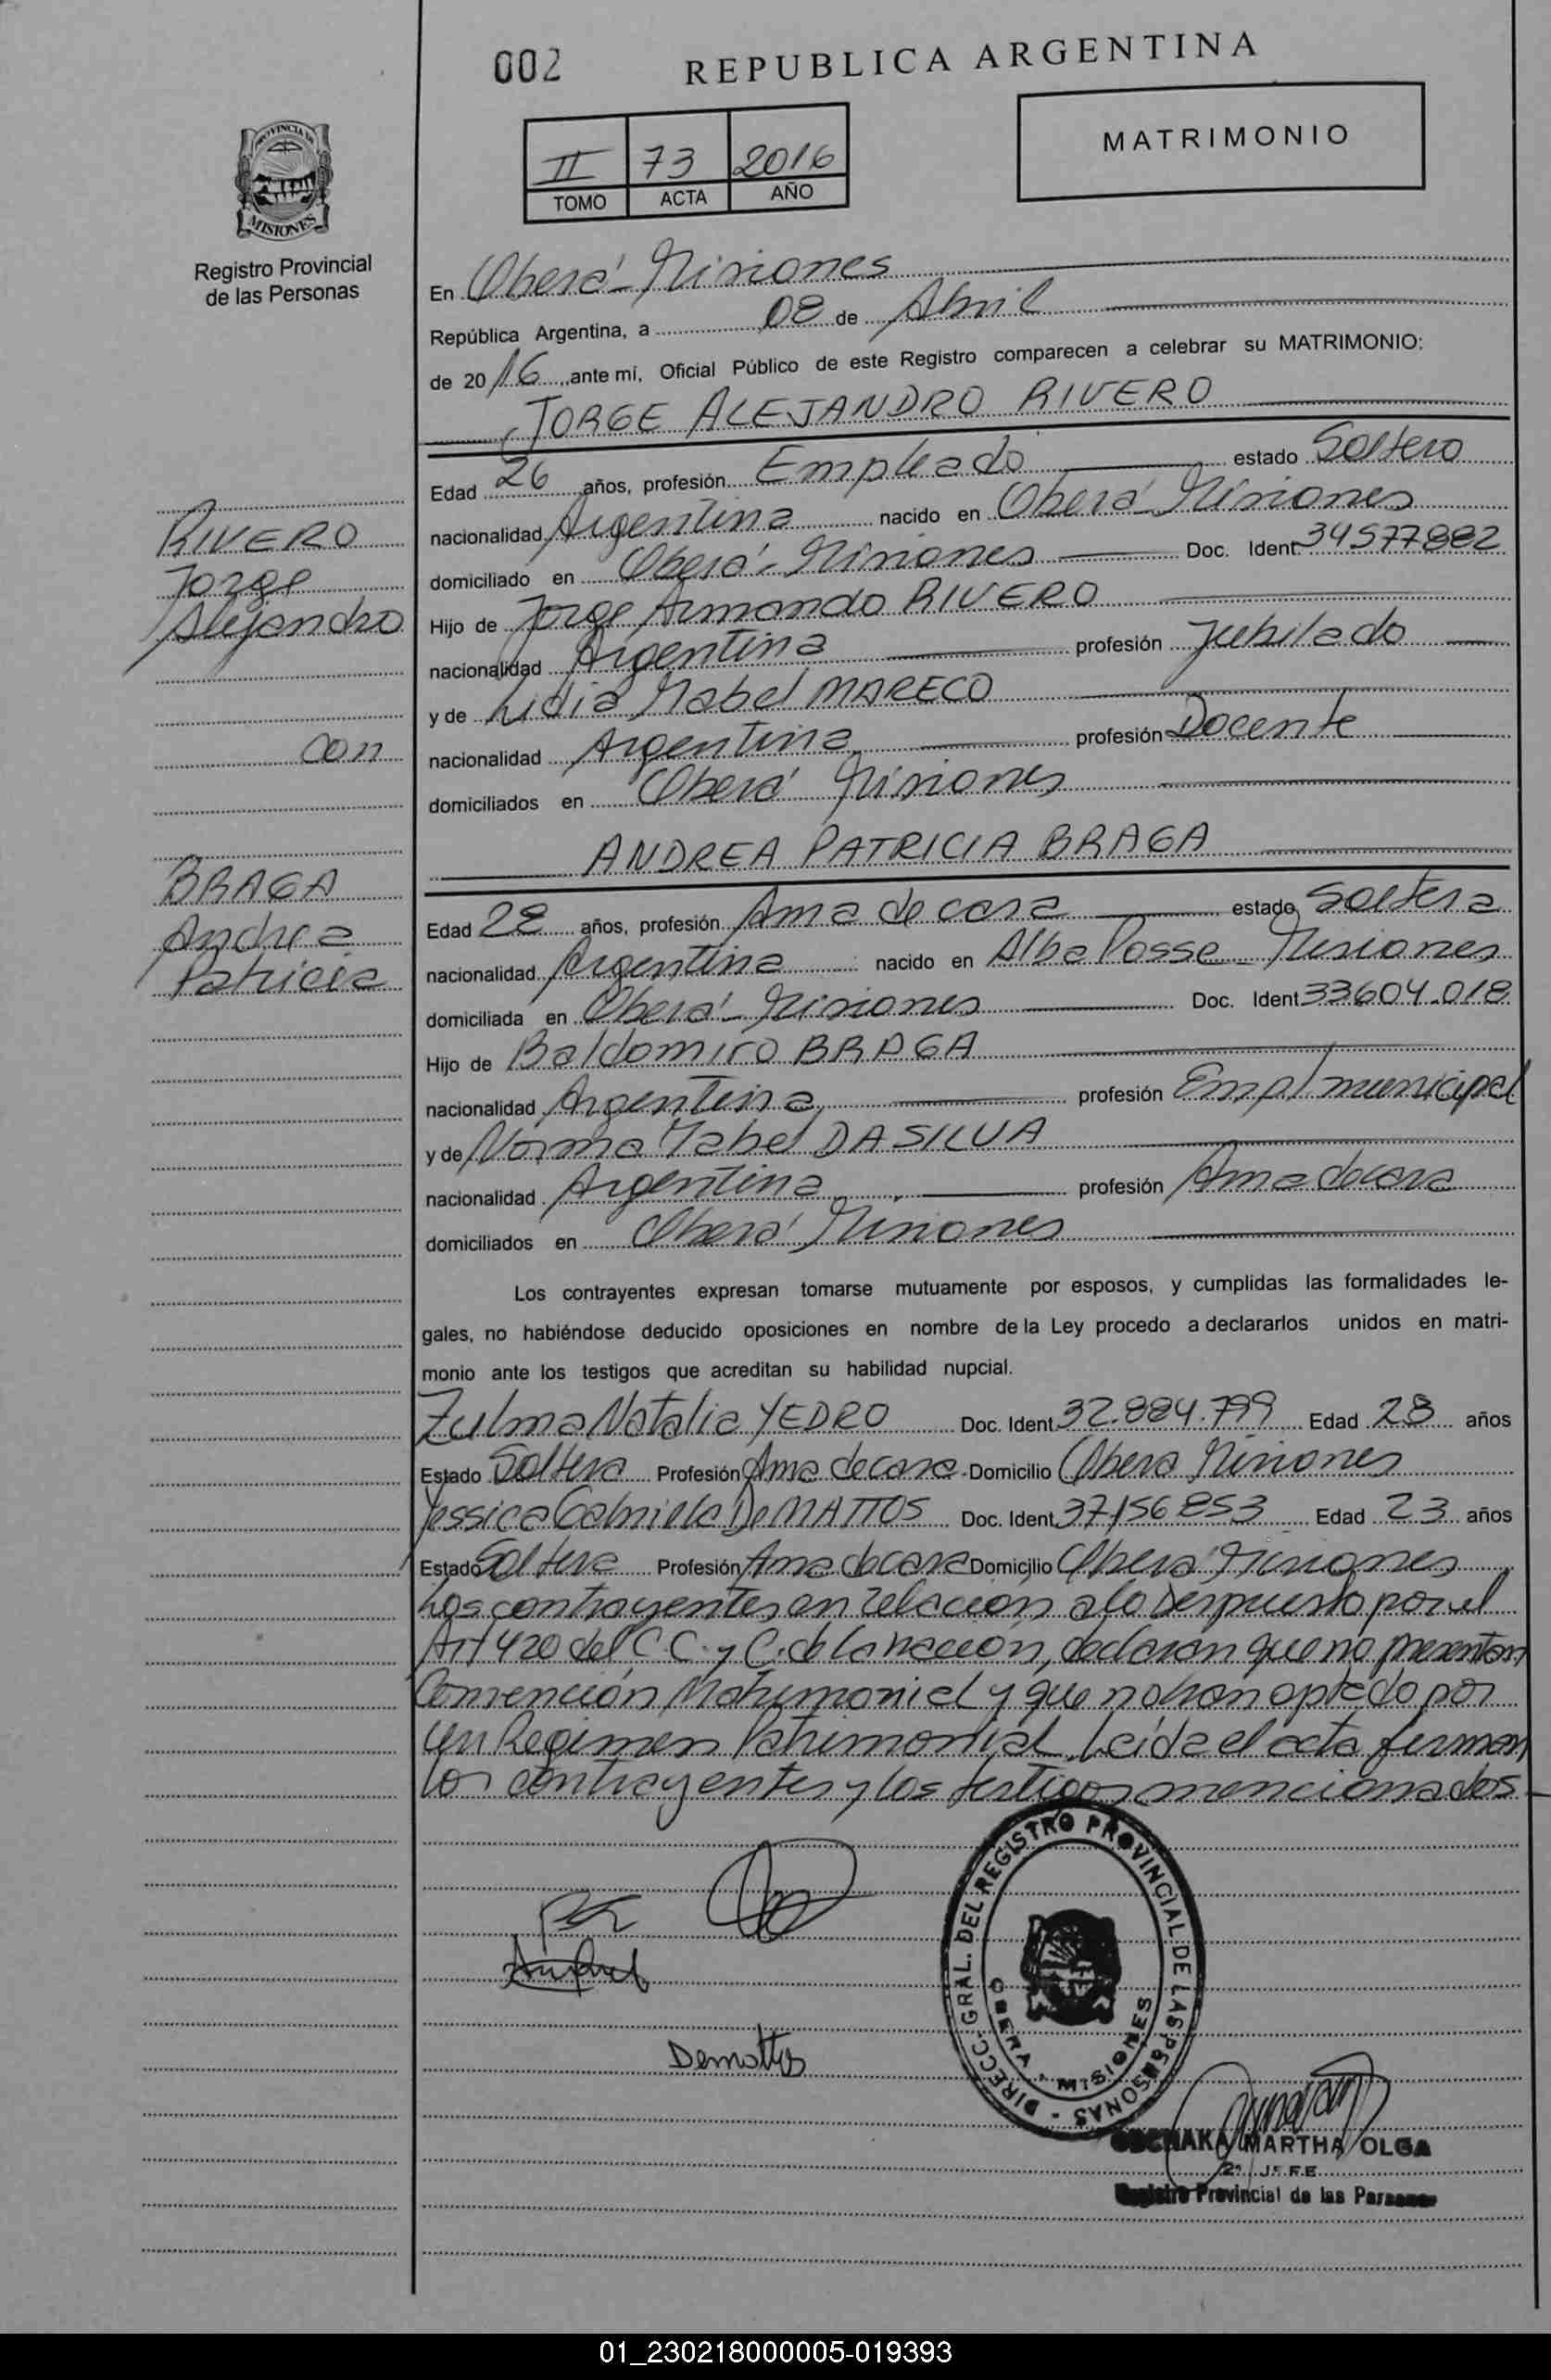 002
REPUBLICA ARGENTINA
II 73 2016
TOMO ACTA AÑO
MATRIMONIO
PROVINCIA DE
MISIONES
Registro Provincial
de las Personas
En Oberá - Misiones
República Argentina, a 08 de Abril
de 2016, ante mí, Oficial Público de este Registro comparecen a celebrar su MATRIMONIO:
JORGE ALEJANDRO RIVERO
Edad 26 años, profesión Empleado estado Soltero
nacionalidad Argentina nacido en Oberá - Misiones
domiciliado en Oberá - Misiones Doc. Ident. 34577882
Hijo de Jorge Armando RIVERO
nacionalidad Argentina profesión Jubilado
y de Lidia Mabel MARECO
nacionalidad Argentina profesión Docente
domiciliados en Oberá Misiones
RIVERO
Jorge
Alejandro
con
BRAGA
Andrea
Patricia
ANDREA PATRICIA BRAGA
Edad 28 años, profesión Ama de casa estado Soltera
nacionalidad Argentina nacido en Alba Posse - Misiones
domiciliada en Oberá - Misiones Doc. Ident 33604.018
Hijo de Baldomiro BRAGA
nacionalidad Argentina profesión Empl municipal
y de Norma Isabel DA SILVA
nacionalidad Argentina profesión Ama de casa
domiciliados en Oberá Misiones
Los contrayentes expresan tomarse mutuamente por esposos, y cumplidas las formalidades le-
gales, no habiéndose deducido oposiciones en nombre de la Ley procedo a declararlos unidos en matri-
monio ante los testigos que acreditan su habilidad nupcial.
Zulma Natalia YEDRO Doc. Ident. 32.884.799 Edad 28 años
Estado Soltera Profesión Ama de casa Domicilio Oberá Misiones
Yessica Gabriela De MATTOS Doc. Ident. 37156853 Edad 23 años
Estado Soltera Profesión Ama de casa Domicilio Oberá Misiones
Los contrayentes en relación a lo Derpuesto por el
Art 420 del C.C. y C. de la nación, declaran que no presentan
Convención Matrimonial y que no han optado por
un Regimen Patrimonial. Leída el acta firman
los contrayentes y los testigos mencionados
Demattos
DIRECC. GRAL. DEL REGISTRO PROVINCIAL DE LAS PERSONAS
OBERA - MISIONES
MARTHA OLGA
2º JEFE
Registro Provincial de las Personas
01_230218000005-019393